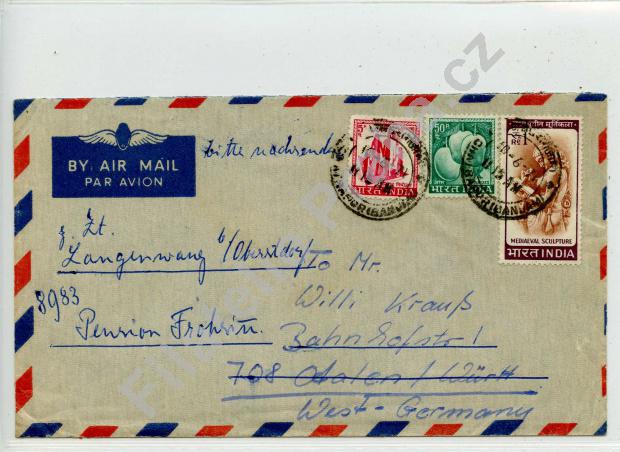 BY AIR MAIL
PAR AVION
bitte nachsenden
5
50
भारत INDIA
भारत INDIA
मूर्तिकला
1
RE
MEDIAEVAL SCULPTURE
भारत INDIA
z. Zt.
Langenwang b/Oberstdorf
8983
Pension Frohsinn
To Mr.
Willi Krauß
Bahnhofstr 1
708 Aalen / Württ
West-Germany